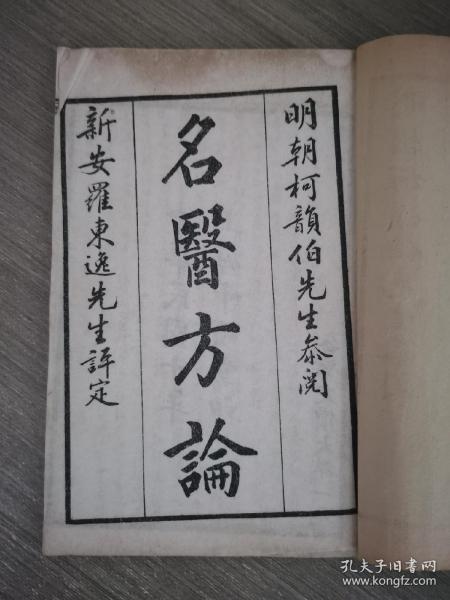 明朝柯韻伯先生叅閱
名醫方論
新安羅東逸先生評定
孔夫子旧书网
www.kongfz.com